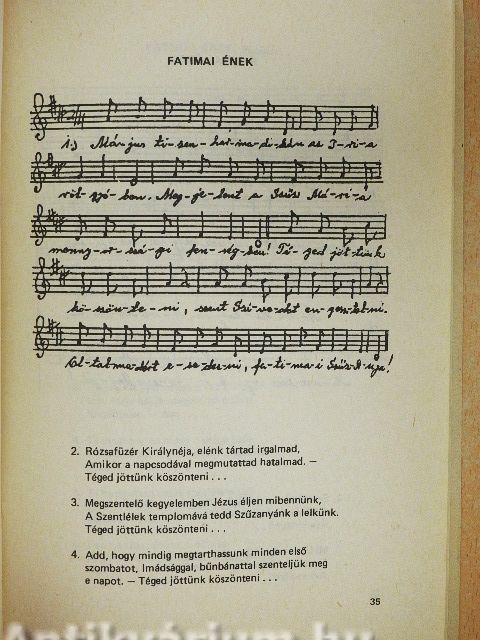 FATIMAI ÉNEK
1.) Má-jus ti-zen-hár-ma-di-kán az I-ri-a
völ-gyé-ben. Meg-je-lent a Szűz Má-ri-a
meny-nye-i fen-ség-ben! Té-ged jöt-tünk
kö-szön-te-ni, szent Szí-ve-det en-gesz-tel-ni.
Ol-tal-ma-dért e-se-dez-ni, fa-ti-ma-i Szűz A-nya!
2. Rózsafüzér Királynéja, elénk tártad irgalmad,
Amikor a napcsodával megmutattad hatalmad. —
Téged jöttünk köszönteni . . .
3. Megszentelő kegyelemben Jézus éljen mibennünk,
A Szentlélek templomává tedd Szűzanyánk a lelkünk.
Téged jöttünk köszönteni . . .
4. Add, hogy mindig megtarthassunk minden első
szombatot, Imádsággal, bűnbánattal szenteljük meg
e napot. — Téged jöttünk köszönteni . . .
35
Antikvárium.hu